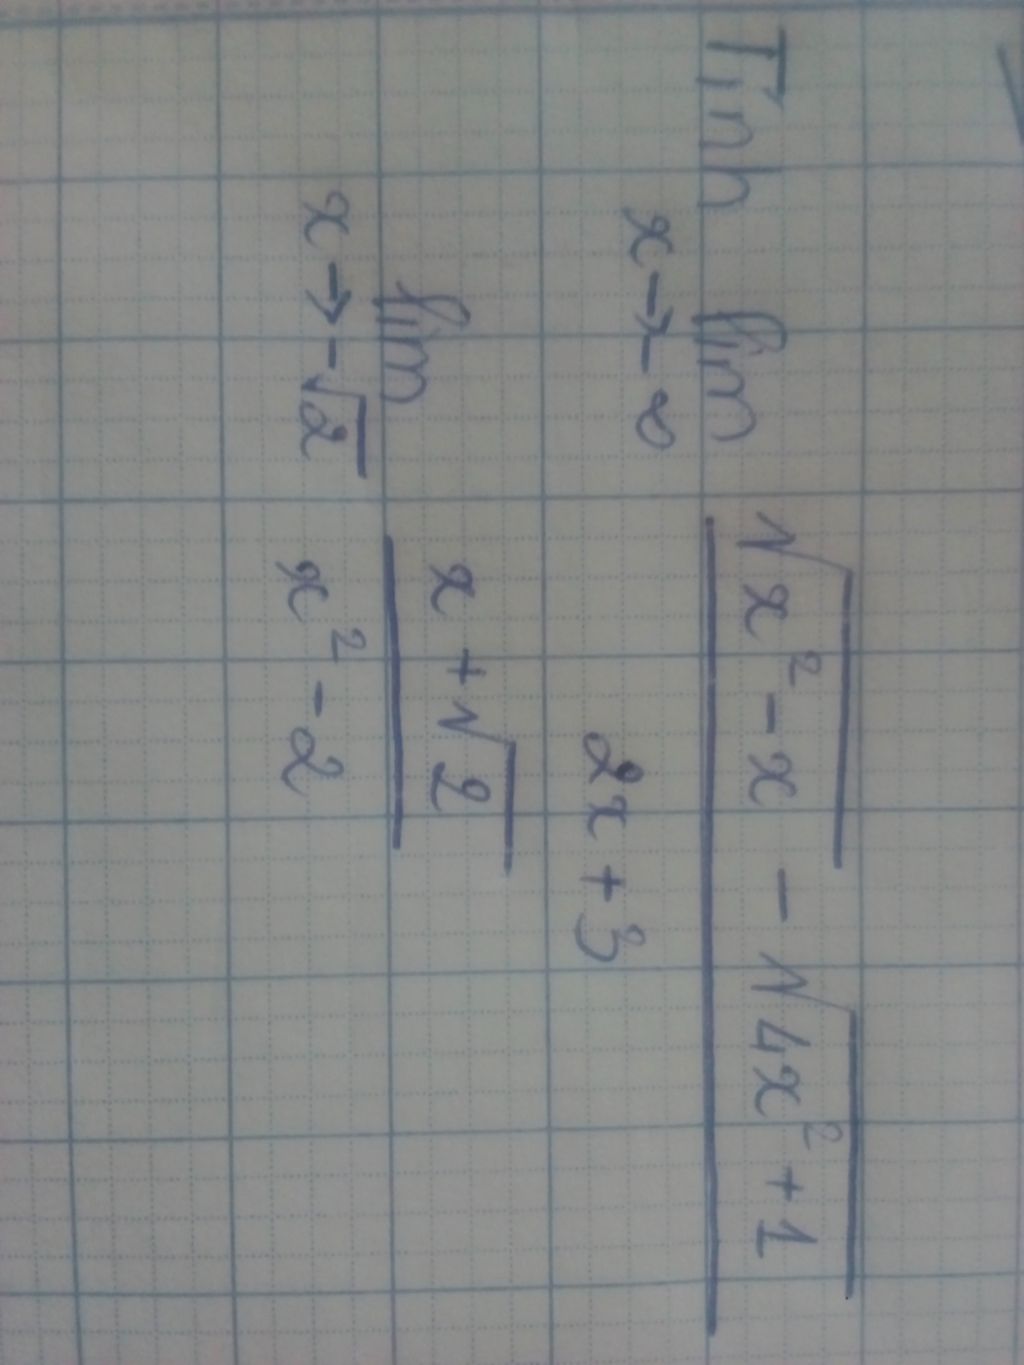 Tính lim x→-∞ (√(x²-x) - √(4x²+1)) / (2x+3)
lim x→-√2 (x+√2) / (x²-2)